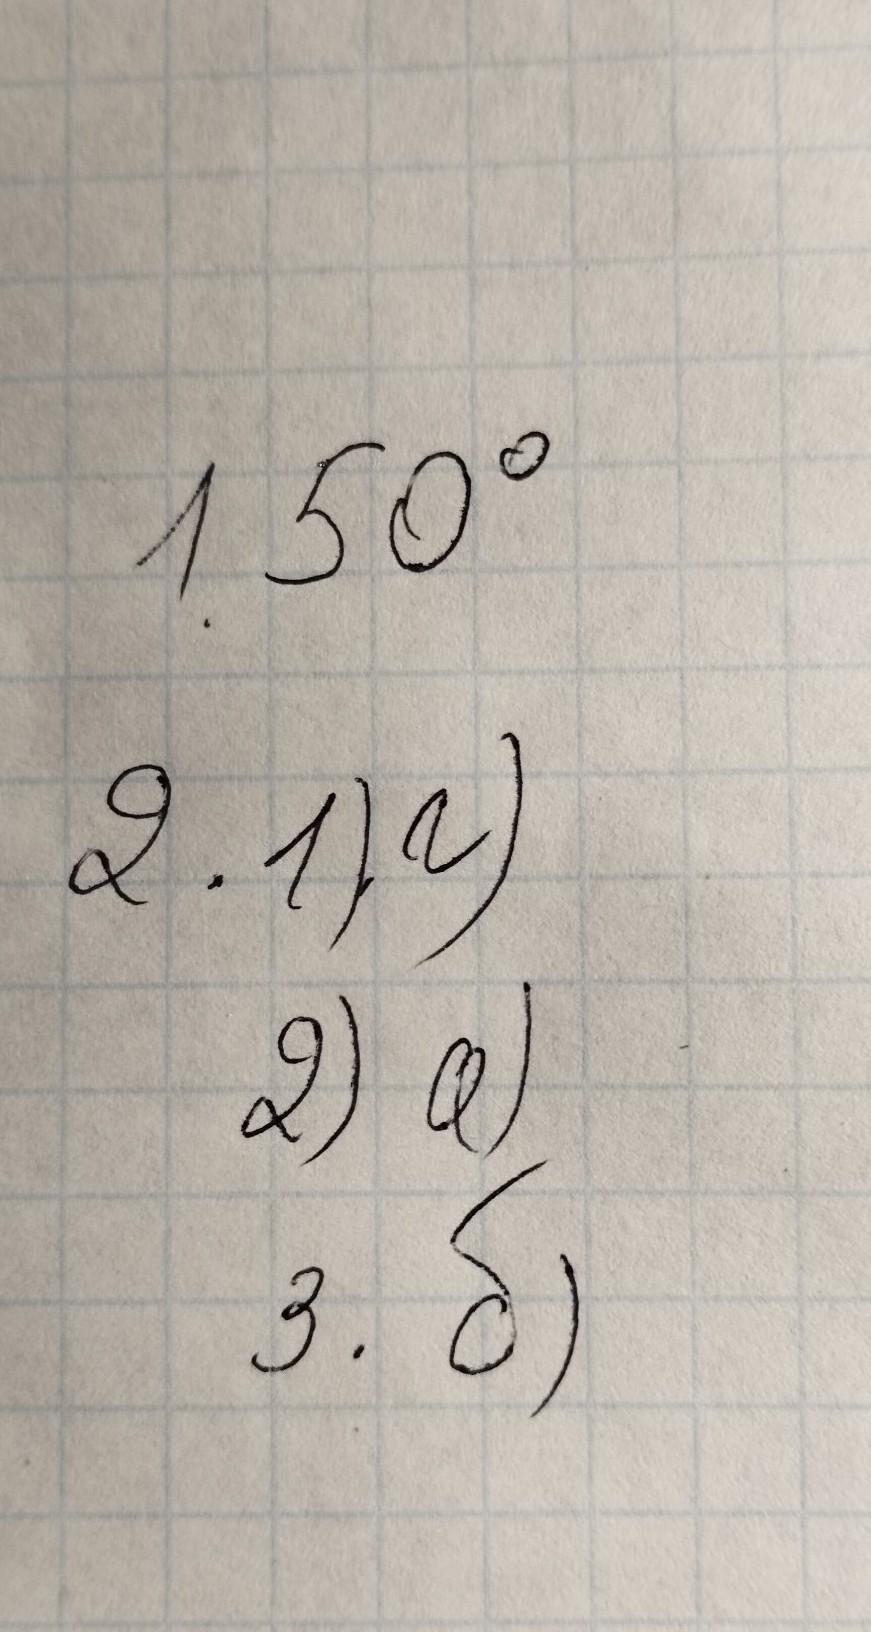 1. 50°
2. 1) г)
2) а)
3. б)